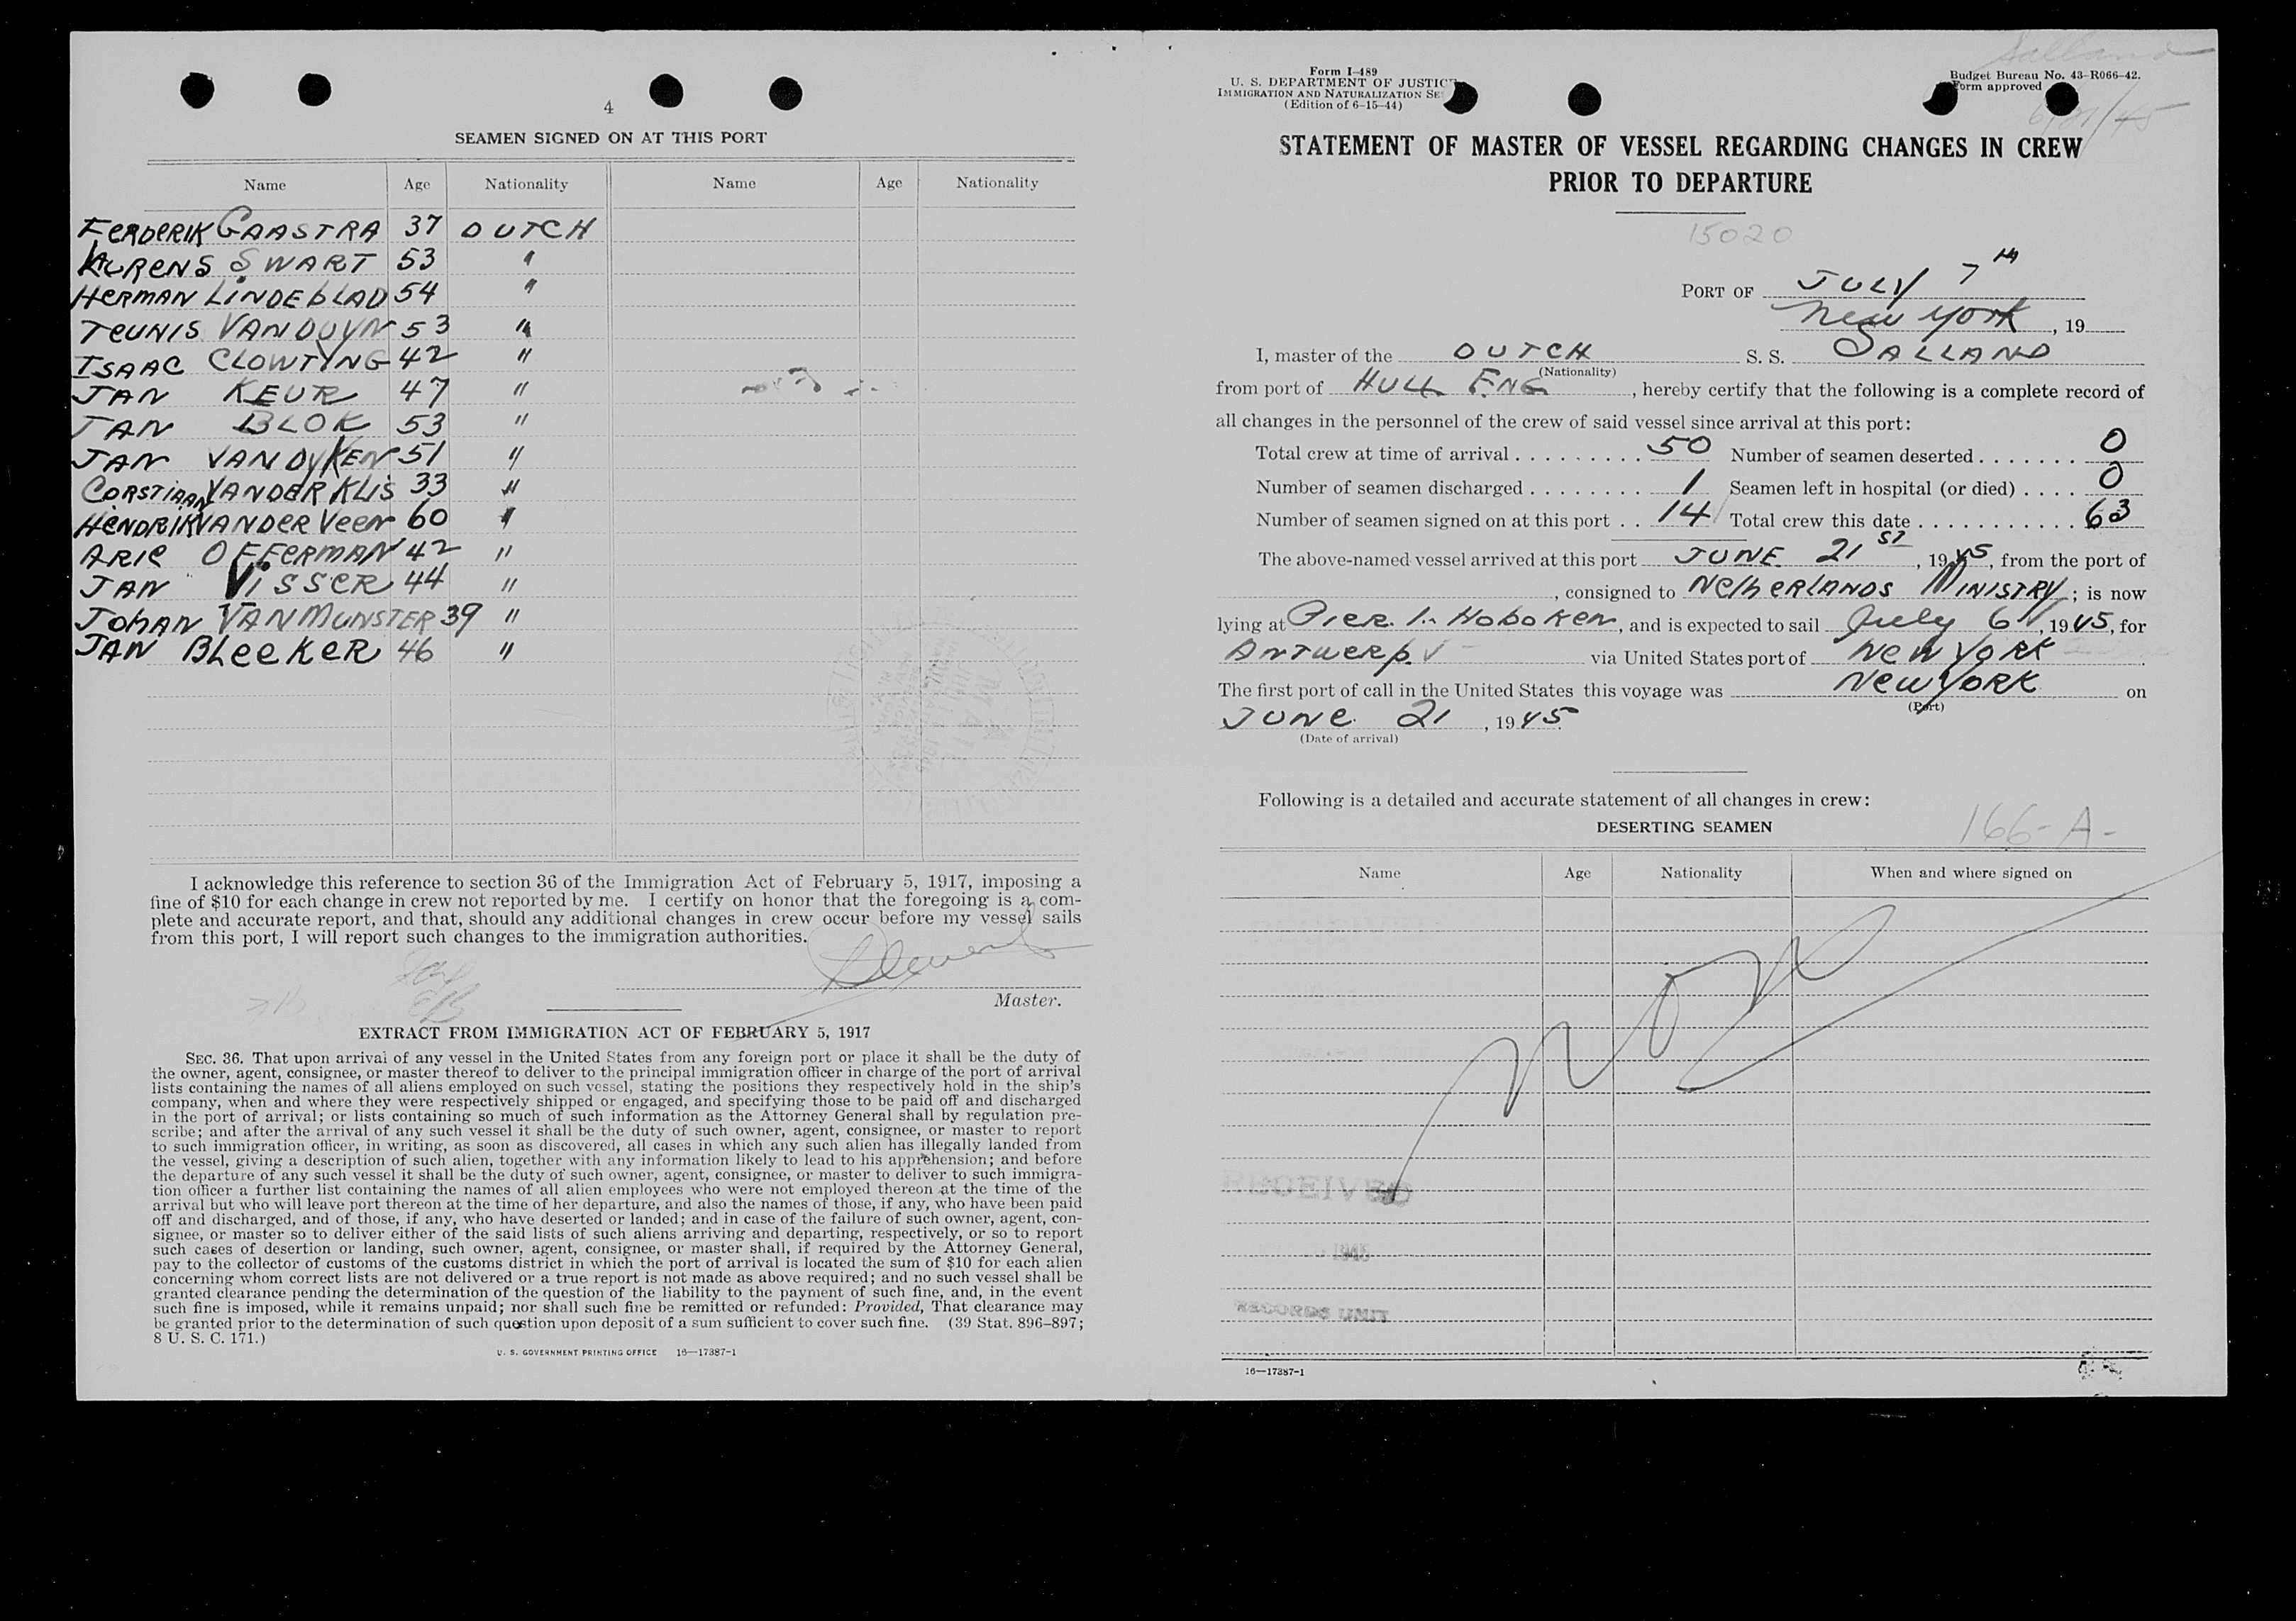 4
SEAMEN SIGNED ON AT THIS PORT
Name Age Nationality Name Age Nationality
FERDERIK GAASTRA 37 DUTCH
LAURENS SWART 53 "
HERMAN LINDEBLAD 54 "
TEUNIS VAN DUYN 53 "
ISAAC CLOWTYNG 42 "
JAN KEUR 47 "
JAN BLOK 53 "
JAN VAN DYKEN 51 "
CORSTIAAN VANDER KLIS 33 "
HENDRIK VANDER VEEN 60 "
ARIE OFFERMAN 42 "
JAN VISSER 44 "
JOHAN VAN MUNSTER 39 "
JAN BLEEKER 46 "
I acknowledge this reference to section 36 of the Immigration Act of February 5, 1917, imposing a
fine of $10 for each change in crew not reported by me. I certify on honor that the foregoing is a com-
plete and accurate report, and that, should any additional changes in crew occur before my vessel sails
from this port, I will report such changes to the immigration authorities.
Master.
EXTRACT FROM IMMIGRATION ACT OF FEBRUARY 5, 1917
SEC. 36. That upon arrival of any vessel in the United States from any foreign port or place it shall be the duty of
the owner, agent, consignee, or master thereof to deliver to the principal immigration officer in charge of the port of arrival
lists containing the names of all aliens employed on such vessel, stating the positions they respectively hold in the ship's
company, when and where they were respectively shipped or engaged, and specifying those to be paid off and discharged
in the port of arrival; or lists containing so much of such information as the Attorney General shall by regulation pre-
scribe; and after the arrival of any such vessel it shall be the duty of such owner, agent, consignee, or master to report
to such immigration officer, in writing, as soon as discovered, all cases in which any such alien has illegally landed from
the vessel, giving a description of such alien, together with any information likely to lead to his apprehension; and before
the departure of any such vessel it shall be the duty of such owner, agent, consignee, or master to deliver to such immigra-
tion officer a further list containing the names of all alien employees who were not employed thereon at the time of the
arrival but who will leave port thereon at the time of her departure, and also the names of those, if any, who have been paid
off and discharged, and of those, if any, who have deserted or landed; and in case of the failure of such owner, agent, con-
signee, or master so to deliver either of the said lists of such aliens arriving and departing, respectively, or so to report
such cases of desertion or landing, such owner, agent, consignee, or master shall, if required by the Attorney General,
pay to the collector of customs of the customs district in which the port of arrival is located the sum of $10 for each alien
concerning whom correct lists are not delivered or a true report is not made as above required; and no such vessel shall be
granted clearance pending the determination of the question of the liability to the payment of such fine, and, in the event
such fine is imposed, while it remains unpaid; nor shall such fine be remitted or refunded: Provided, That clearance may
be granted prior to the determination of such question upon deposit of a sum sufficient to cover such fine. (39 Stat. 896-897;
8 U. S. C. 171.)
U. S. GOVERNMENT PRINTING OFFICE 16—17387-1
Salland
Form I-489
U. S. DEPARTMENT OF JUSTICE
IMMIGRATION AND NATURALIZATION SE
(Edition of 6-15-44)
Budget Bureau No. 43-R066-42.
Form approved
6/21/45
STATEMENT OF MASTER OF VESSEL REGARDING CHANGES IN CREW
PRIOR TO DEPARTURE
15020
PORT OF JULY 7th
New York, 19
I, master of the DUTCH S. S. SALLAND
(Nationality)
from port of HULL ENG, hereby certify that the following is a complete record of
all changes in the personnel of the crew of said vessel since arrival at this port:
Total crew at time of arrival 50 Number of seamen deserted 0
Number of seamen discharged 1 Seamen left in hospital (or died) 0
Number of seamen signed on at this port 14 Total crew this date 63
The above-named vessel arrived at this port JUNE 21ST, 1945, from the port of
, consigned to NETHERLANDS MINISTRY; is now
lying at Pier. 1. Hoboken, and is expected to sail July 6, 1945, for
ANTWERP. via United States port of NEW YORK
The first port of call in the United States this voyage was NEW YORK on
(Port)
JUNE 21, 1945
(Date of arrival)
Following is a detailed and accurate statement of all changes in crew:
DESERTING SEAMEN
166-A-
Name Age Nationality When and where signed on
None
RECEIVED
1945
RECORDS UNIT
16—17387-1